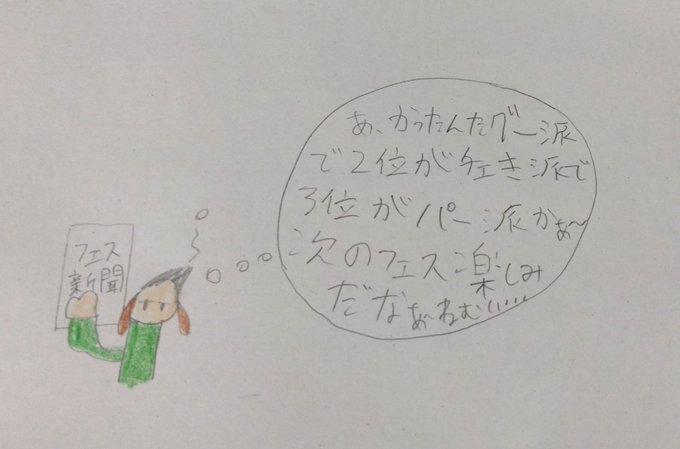 フェス
新聞
あ、かったんだグー派
で2位がチェき派で
3位がパー派かぁ〜
次のフェス楽しみ
だなぁ〜ねむい……